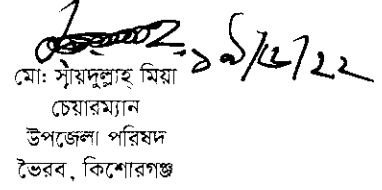 মো: সায়দুল্লাহ্ মিয়া
চেয়ারম্যান
উপজেলা পরিষদ
ভৈরব, কিশোরগঞ্জ